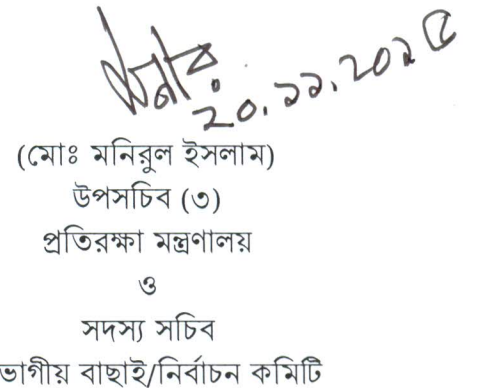 ২০.১১.২০২৫
(মোঃ মনিরুল ইসলাম)
উপসচিব (৩)
প্রতিরক্ষা মন্ত্রণালয়
ও
সদস্য সচিব
ভাগীয় বাছাই/নির্বাচন কমিটি